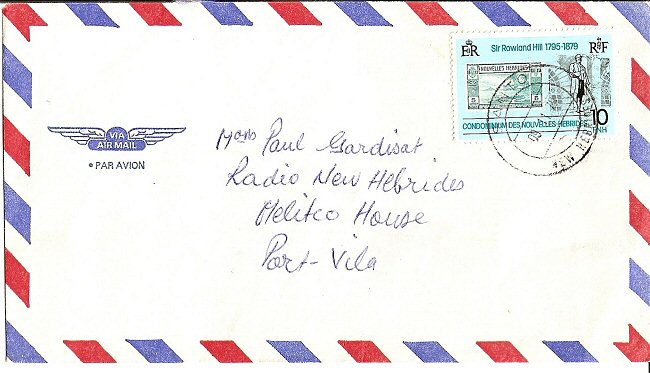 VIA
AIR MAIL
PAR AVION
EIIR
Sir Rowland Hill 1795-1879
RF
NOUVELLES HEBRIDES
5
5
CONDOMINIUM DES NOUVELLES-HEBRIDES
10
FNH
SANTO
NEW HEBRI
Mons Paul Gardisat
Radio New Hebrides
Melitco House
Port-Vila